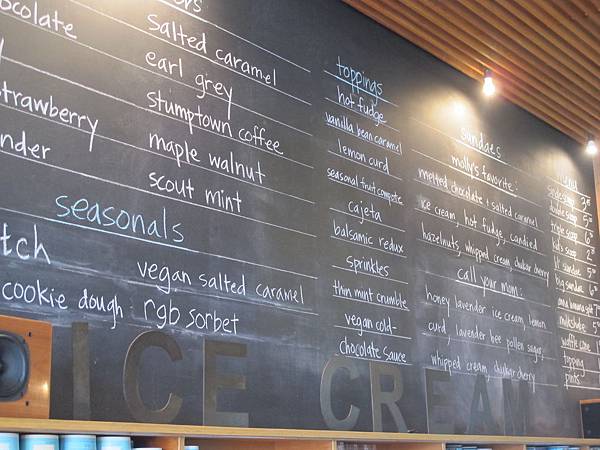 ors
ocolate
salted caramel
earl grey
stumptown coffee
strawberry
maple walnut
nder
scout mint
seasonals
tch
vegan salted caramel
cookie dough
rgb sorbet
toppings
hot fudge
vanilla bean caramel
lemon curd
seasonal fruit compote
cajeta
balsamic redux
sprinkles
thin mint crumble
vegan cold-
chocolate sauce
sundaes
molly's favorite:
melted chocolate + salted caramel
ice cream, hot fudge, candied
hazelnuts, whipped cream, chubar cherry
call your mom:
honey lavender ice cream, lemon
curd, lavender bee pollen sugar,
whipped cream, chubar cherry
single scoop
double scoop
triple scoop 6
kid's scoop 2
lil sundae 5
big sundae
milkshake
waffle cone
topping
pints
ICE CREAM